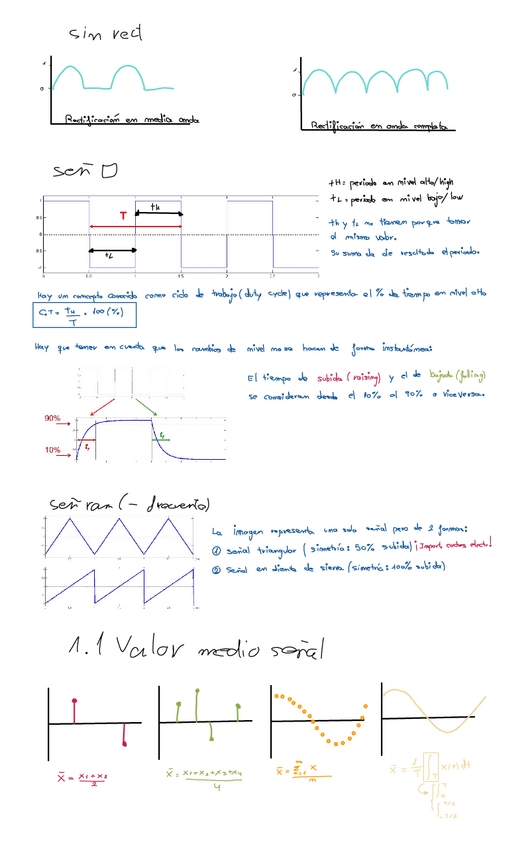 sin red
1
0
Rectificación en media onda
1
0
Rectificación en onda completa
señ
tH = periodo en nivel alto/high
tL = periodo en nivel bajo/low
tH y tL no tienen porque tomar
el mismo valor.
Su suma da de resultado el periodo.
T
tH
tL
Hay un concepto conocido como ciclo de trabajo (duty cycle) que representa el % de tiempo en nivel alto
CT = tH/T · 100 (%)
Hay que tener en cuenta que los cambios de nivel no se hacen de forma instantánea:
El tiempo de subida (raising) y el de bajada (falling)
se consideran desde el 10% al 90% o viceversa.
90%
10%
tr
tf
señ ram (- frecuente)
La imagen representa una sola señal pero de 2 formas:
① Señal triangular (simetría: 50% subida) ¡Import. elect.!
② Señal en diente de sierra (simetría: 100% subida)
1.1 Valor medio señal
x̄ = x1+x2/2
x̄ = x1+x2+x3+x4/4
x̄ = Σ x/n
x̄ = 1/T ∫T x(t) dt